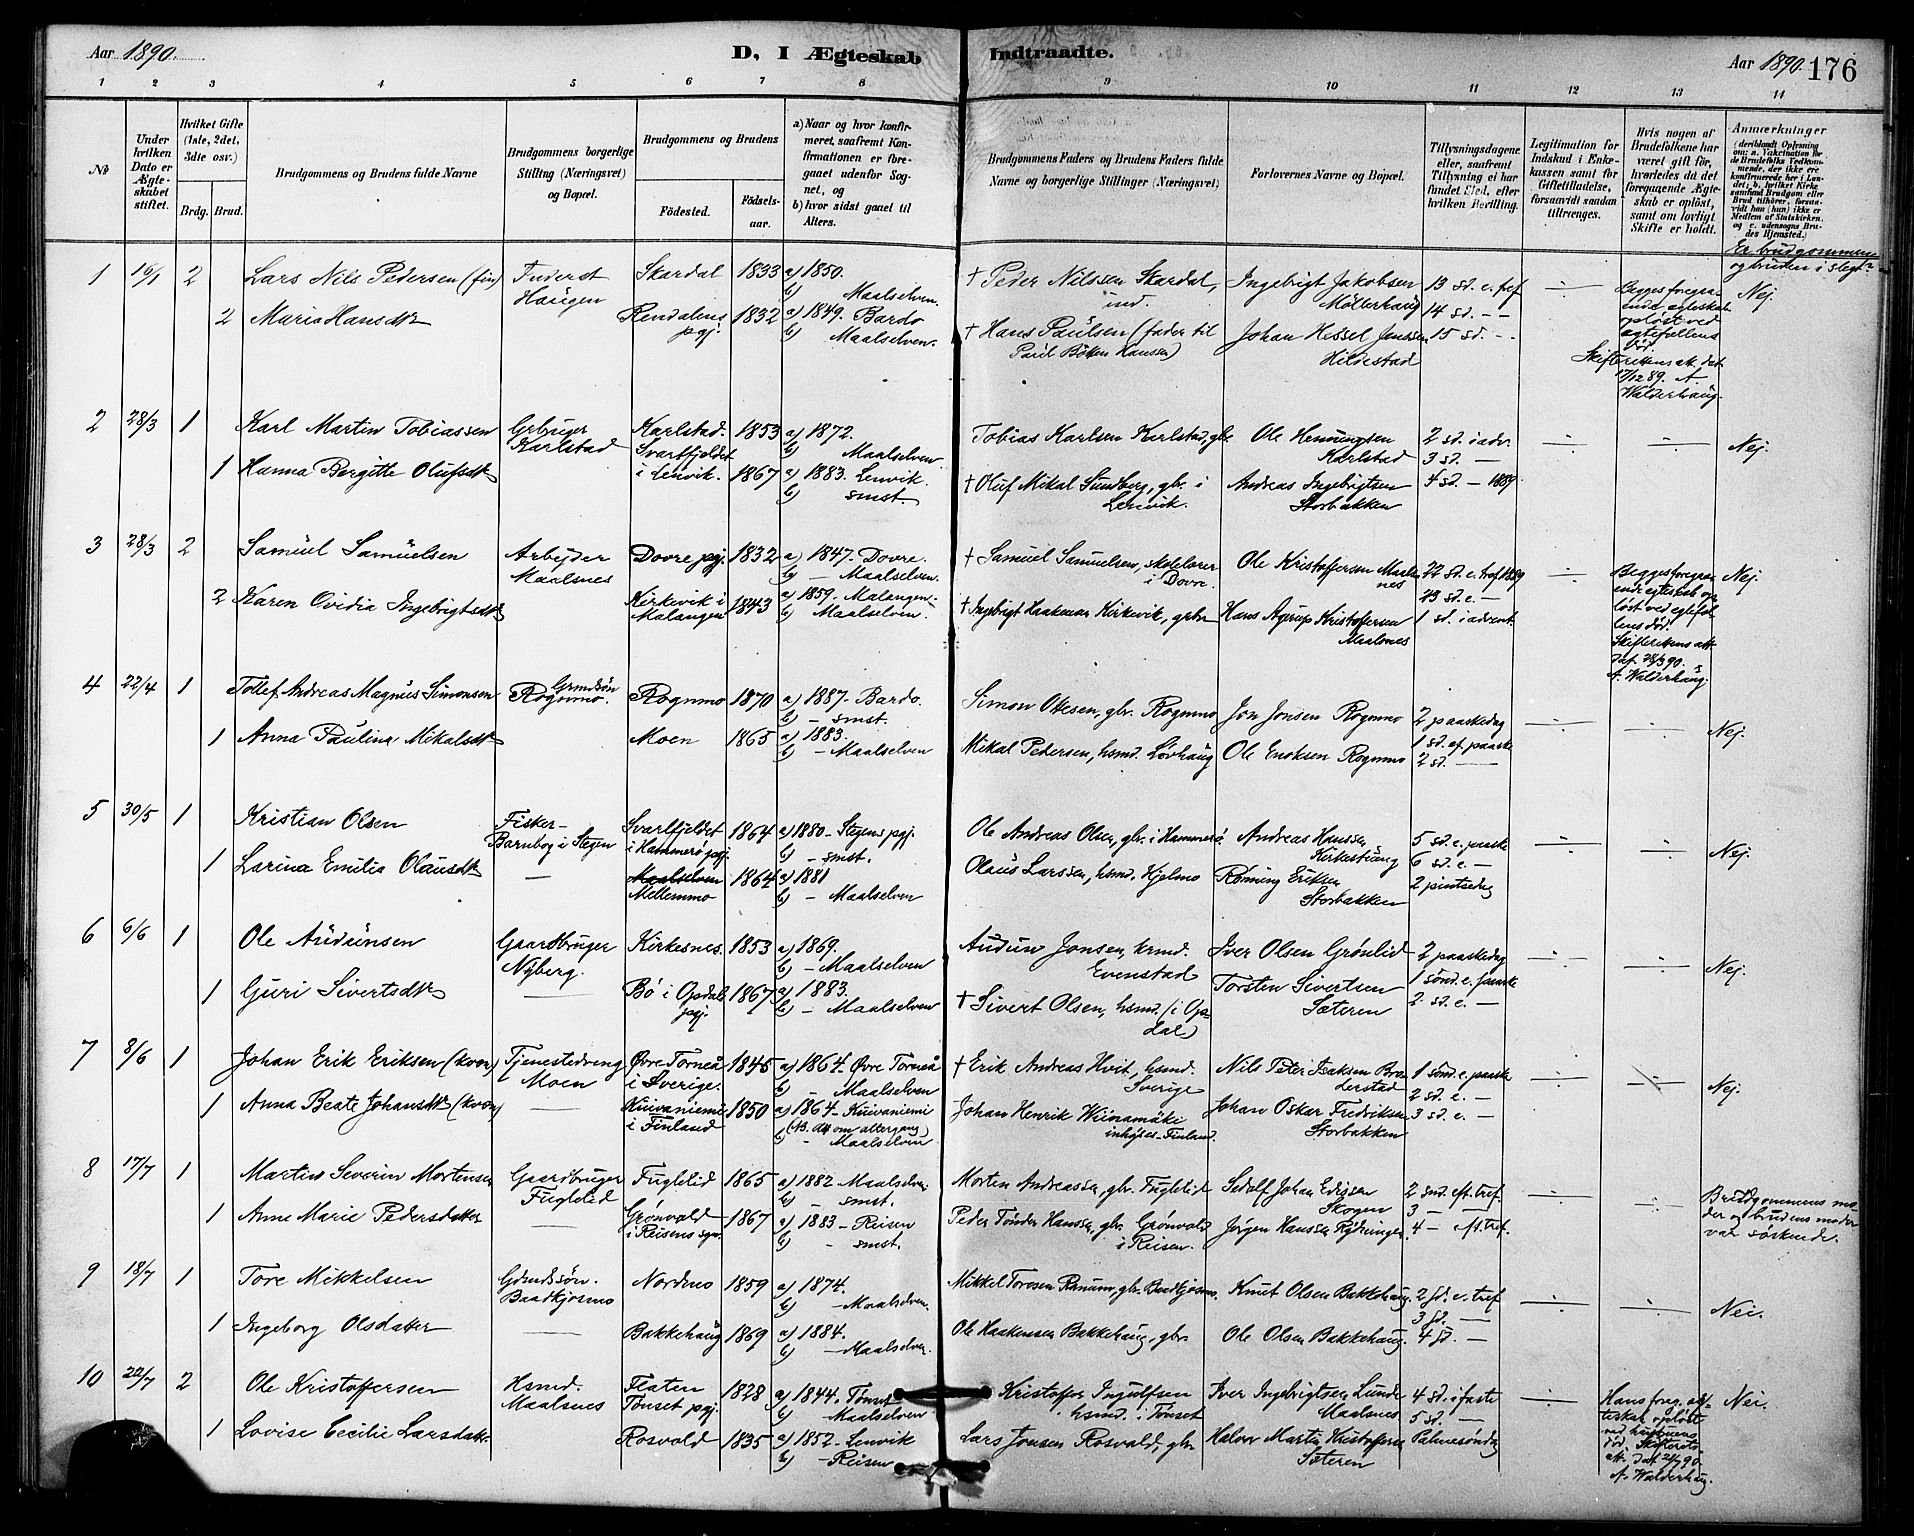 Aar 1890. D, I Ægteskab Indtraadte. Aar 1890. 176
1 2 3 4 5 6 7 8 9 10 11 12 13 14
No
Under hvilken Dato er Ægteskabet stiftet.
Hvilket Gifte (1ste, 2det, 3die osv.)
Brdg. Brud.
Brudgommens og Brudens fulde Navne
Brudgommens borgerlige Stilling (Næringsvei) og Bopæl.
Brudgommens og Brudens
Fødested. Fødselsaar.
a) Naar og hvor konfirmeret, saafremt Konfirmationen er foregaaet udenfor Sognet, og
b) hvor sidst gaaet til Alters.
Brudgommens Faders og Brudens Faders fulde Navne og borgerlige Stillinger (Næringsvei)
Forlovernes Navne og Bopæl.
Tillysningsdagene eller, saafremt Tillysning ei har fundet Sted, efter hvilken Bevilling.
Legitimation for Indskud i Enkekassen samt for Giftetilladelse, forsaavidt saadan tiltrænges.
Hvis nogen af Brudefolkene har været gift før, hvorledes da det foregaaende Ægteskab er opløst, samt om lovligt Skifte er holdt.
Anmærkninger (deriblandt Oplysning om: a. Vakcination for de Brudefolks Vedkommende, der ikke ere konfirmerede her i Landet; b. hvilket Kirkesamfund Brudgom eller Brud tilhører, forsaavidt han (hun) ikke er Medlem af Statskirken, og c. udensogns Brudes Hjemsted.)
Er brudgommen og bruden i slegt?
1 16/1 2 Lars Nils Pedersen (fin) Inderst Haugen Skardal 1833 a) 1850. b) Maalselven.
† Peder Nilssen Skardal, ind. Ingebrigt Jakobsen Møllerhaug 13 sd. e. tref Nej.
2 Maria Hansdtr Rendalens pgj. 1832 a) 1849. Bardo b) Maalselven.
† Hans Paulsen (fader til Paul Bøken Hanssen) Johan Hessel Jenssen Hildestad 14 sd. - - 15 sd. - -
Begges foregaaende egteskab opløst ved egtefellens død. Skifterettens att. dat. 17/12 89. A. Walderhaug.
2 28/3 1 Karl Martin Tobiassen Grbruger Karlstad Karlstad. 1853 a) 1872. b) Maalselven
Tobias Karlsen Karlstad, gbr. Ole Henningsen Karlstad 2 sd. i adv. 3 sd. — Nej.
1 Hanna Bergitte Olufsdtr Svartfjeldet i Lenvik. 1867 a) 1883. Lenvik. b) smst.
† Oluf Mikal Sundberg, gbr. i Lenvik. Andreas Ingebrigtsen Storbakken 4 sd. — 1889.
3 28/3 2 Samuel Samuelsen Arbejder Maalsnes Dovre pgj. 1832 a) 1847. Dovre. b) — Maalselven.
† Samuel Samuelsen, skolelærer i Dovre. Ole Kristoffersen Maalsnes 22 sd. e. tref 1889 23 sd. e. — Nej.
2 Karen Ovidia Ingebrigtsdtr Kirkevik i Malangen 1843 a) 1859. Malangen. b) Maalselven.
† Ingebrigt Haakensen Kirkevik, grbr. Hans Agerup Kristoffersen Maalsnes 1 sd. i advent.
Begges foregaaende egteskab opløst ved egtefellens død. Skifterettens att. dat. 28/3 90. A. Walderhaug.
4 22/4 1 Tollef Andreas Magnus Simonsen Grmdsøn Rognmo. Rognmo 1870 a) 1887. Bardo. b) — smst.
Simon Olesen, gbr. Rognmo Jon Jonsen Rognmo 2 paaskedag Nej.
1 Anna Paulina Mikalsdtr Moen 1865 a) 1883. b) — Maalselven
Mikal Pedersen, hsmd. Løvhaug Ole Enoksen Rognmo 1 sd. ef. paaske 2 sd. —
5 30/5 1 Kristian Olsen Fisker — Barnbog i Stegen Svartfjeldet i Hammerø pgj. 1864 a) 1880 — Stegens pgj. b) — smst.
Ole Andreas Olsen, gbr. i Hammerø. Andreas Hanssen Kirkestuug 5 sd. e. paaske 6 sd. e. — Nej.
1 Larina Emilia Olausdtr — Maalselven Mellemmo 1864 a) 1881 b) — Maalselven
Olaus Larssen, hsmd. Hjelmo Rønning Eriksen Storbakken 2 pintsedag
6 6/6 1 Ole Audunsen Gaardbruger Nyberg. Kirkesnes. 1853 a) 1869. b) — Maalselven
Audun Jonsen, krmd. Evenstad Iver Olsen Grønlid 2 paaskedag Nej.
1 Guri Sivertsdtr — Bø i Opdals pgj. 1867 a) 1883. b) — Maalselven
† Sivert Olsen, hsmd. (i Opdal) Torsten Sivertsen Sæteren 1 sønd. e. paaske 2. sd. e. —
7 8/6 1 Johan Erik Eriksen (kvæn) Tjenestedreng Moen Øvre Torneå i Sverige. 1845 a) 1864. Øvre Torneå b) Maalselven
† Erik Andreas Hvit, hsmd. Sverige Nils Peter Isaksen Broderstad 1 sønd. e. paaske 2 sd. e. — Nej.
1 Anna Beate Johansdtr (kvæn) — Kuivaniemi i Finland 1850 a) 1864 — Kuivaniemi (NB. Att. om altergang) b) — Maalselven
Johan Henrik Wiinamäki inhyses — Finland. Johan Oskar Fredriksen Storbakken 3 sd. e. —
8 17/7 1 Martin Severin Mortensen Gaardbruger Fuglelid Fuglelid 1865 a) 1882 — Maalselven b) — smst.
Morten Andreassen, gbr. Fuglelid Sedolf Johan Edissen Skogen 2 snd. eft. tref. 3 — —
1 Anne Marie Pedersdatter — Grønvold i Reisens sgn. 1867 a) 1883 — Reisen b) — smst.
Peder Tønder Hanssen, gbr. Grønvold i Reisen. Jørgen Hanssen Rydninger. 4 — eft. tref.
Brudgommens moder og brudens moder var søskende.
9 18/7 1 Tore Mikkelsen Grdmdssøn. Baadkjosnes Nordmo 1859 a) 1874. b) — Maalselven.
Mikkel Toresen Ranum, gbr. Baadkjosnes. Knut Olsen Bakkehaug. 2 sd. e. tref 3 sd. — Nei.
1 Ingeborg Olsdatter — Bakkehaug 1869 a) 1884. b) — Maalselven.
Ole Haakenssen Bakkehaug, gbr. Ole Olsen Bakkehaug. 4 sd. —
10 22/7 2 Ole Kristoffersen Hsmd. Maalsnes Flaten Tønset pgj. 1828 a) 1844. Tønset b) Maalselven
Kristoffer Ingulfsen hsmd. i Tønset Iver Ingebrigtsen Lunde Maalsnes 4 sd. i faste 5 sd. — Nei.
1 Lovise Cecilie Larsdatter Rosvold 1835 a) 1852. Lenvik b) — Reisen
Lars Jonsen Rosvold, gbr. Halvor Martin Kristoffersen Sæteren Palmesøndag
Hans foreg. egteskab opløst ved hustruens død. Skifteretsatt. dat. 21/7 90. A. Walderhaug.